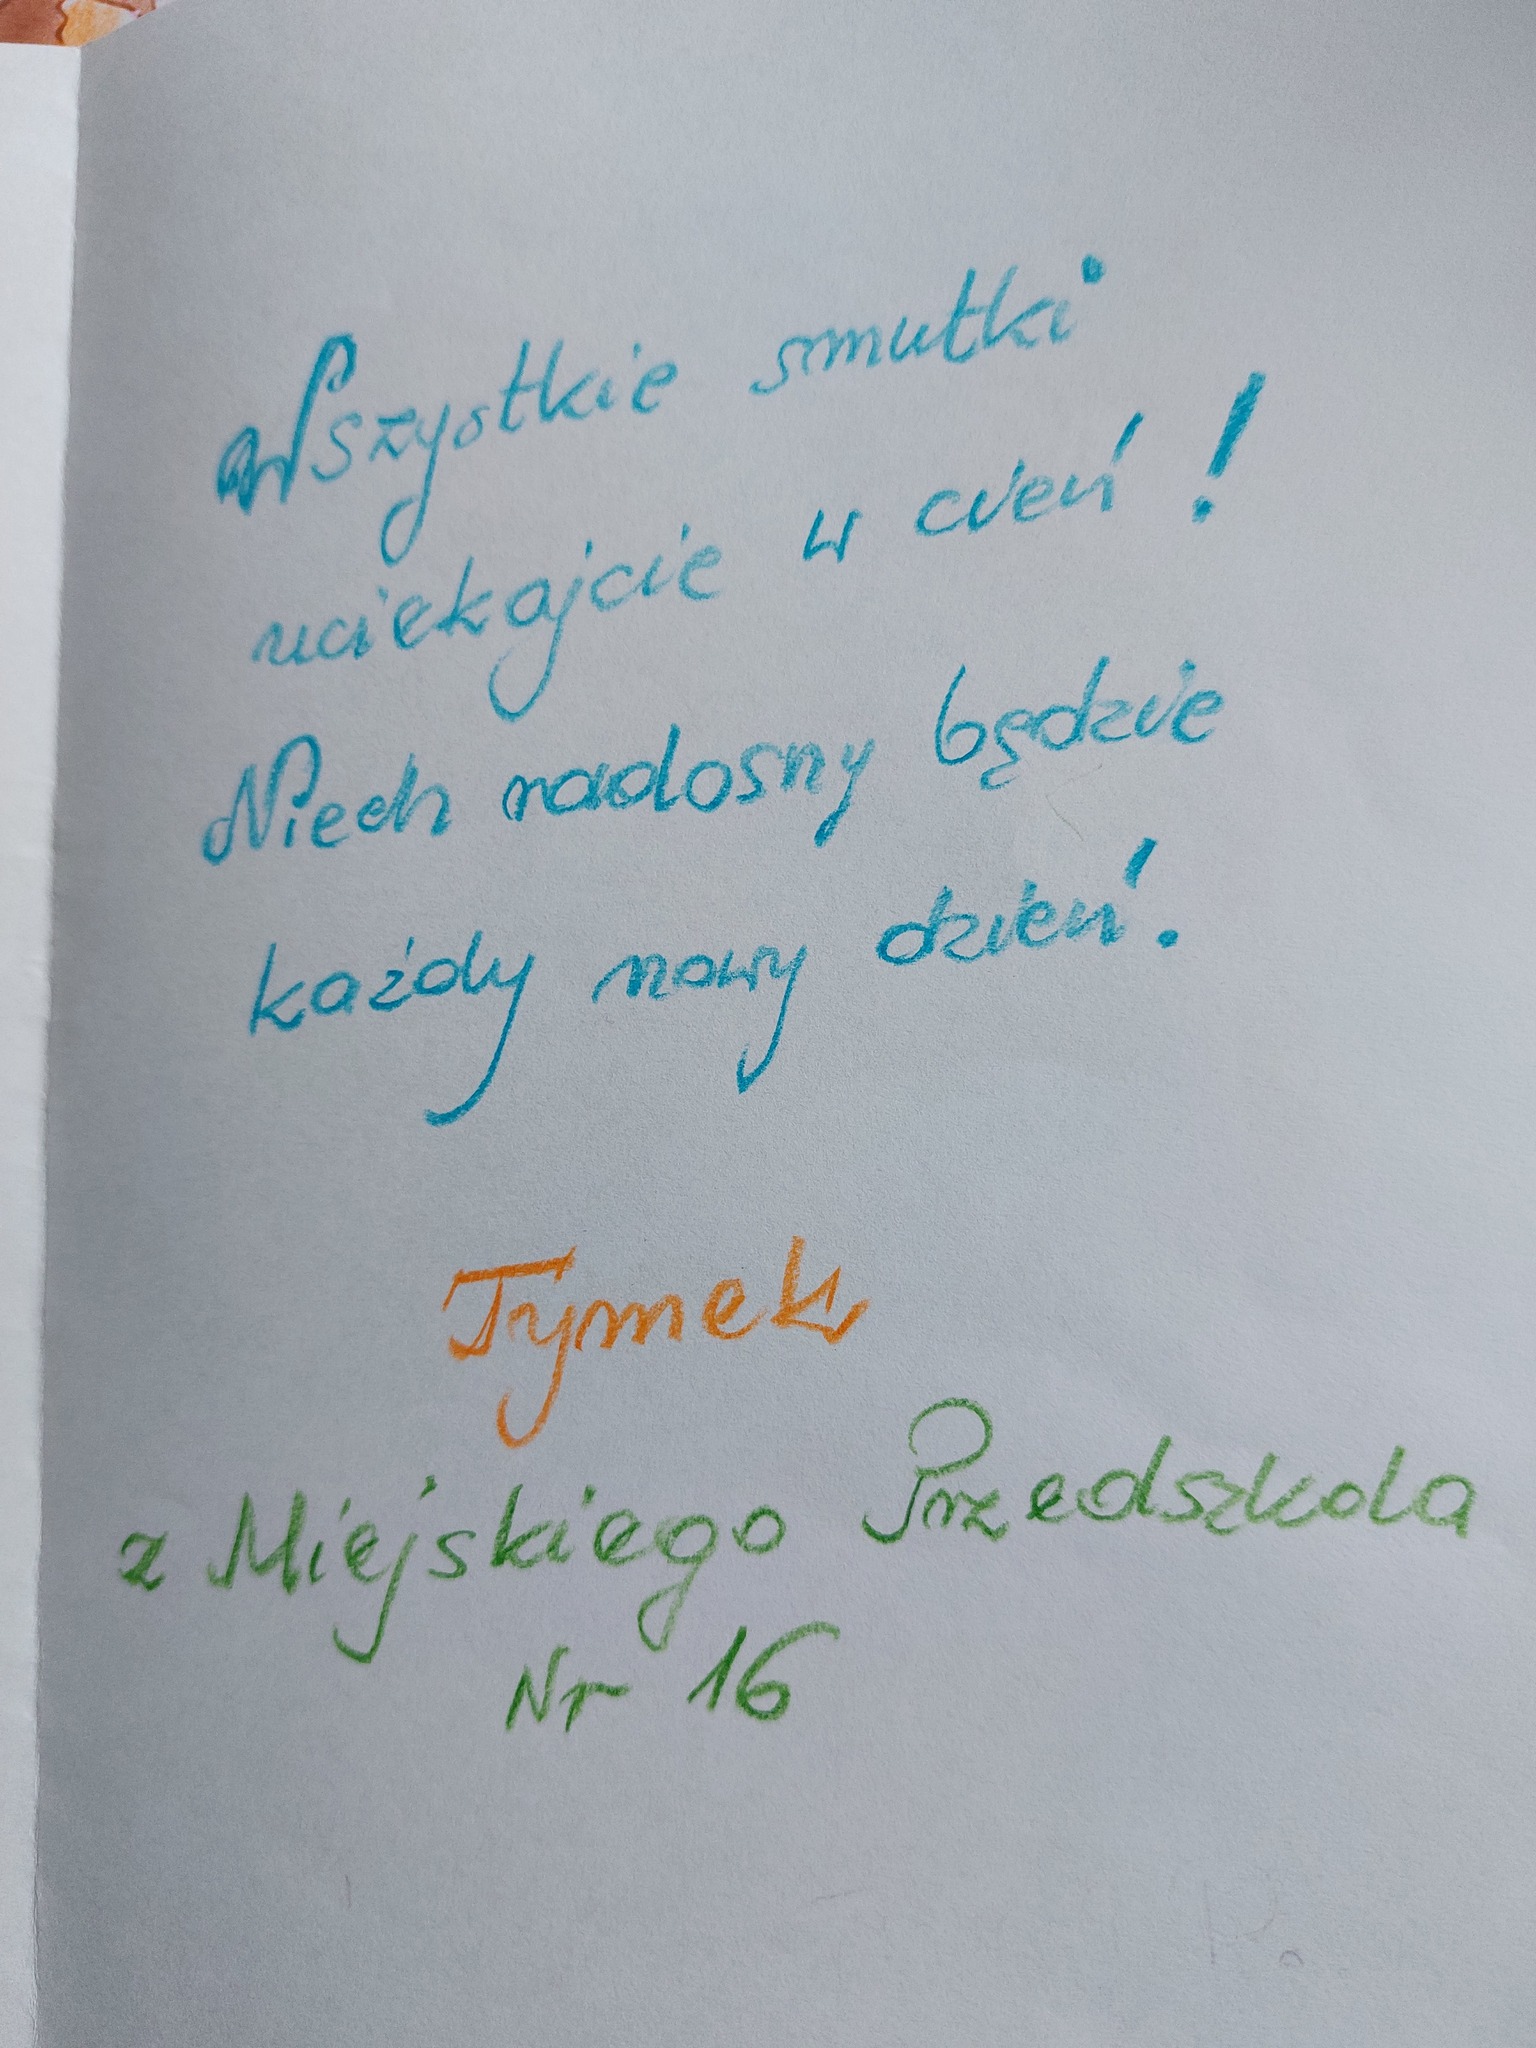 Wszystkie smutki
uciekajcie w cień!
Niech radosny będzie
każdy nowy dzień.
Tymek
z Miejskiego Przedszkola
Nr 16